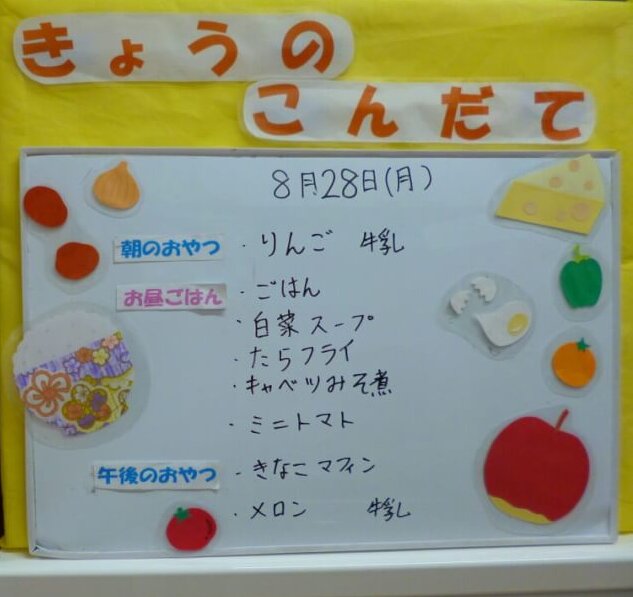 きょうの
こんだて
8月28日(月)
朝のおやつ ・りんご 牛乳
お昼ごはん ・ごはん
・白菜スープ
・たらフライ
・キャベツみそ煮
・ミニトマト
午後のおやつ ・きなこマフィン
・メロン 牛乳